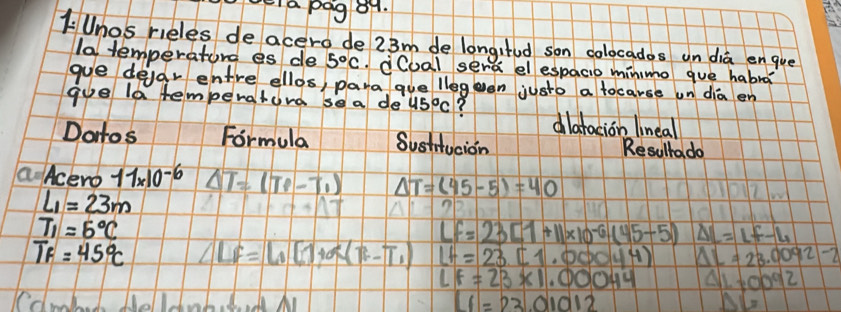 pag 89.
1. Unos rieles de acero de 23m de longitud son colocados un dia en que
la temperatura es de 5°C. ¿Cual será el espacio mínimo que habrá
que dejar entre ellos, para que lleguen justo a tocarse un dia en
que la temperatura sea de 45°C?
dilatación lineal
Datos Fórmula Sustitución Resultado
a= Acero 11x10-6 ΔT=(Tf-Ti) ΔT=(45-5)=40
Li=23m
Ti=5°C Lf=23[1+11x10-6(45-5) ΔL=Lf-Li
Tf=45°C Lf=Li[1+α(Tf-Ti) Lf=23[1.00044) ΔL=23.0092-2
Lf=23x1.00044 ΔL=0092
Cambio de longitud ΔL Lf=23.01012 ΔL=